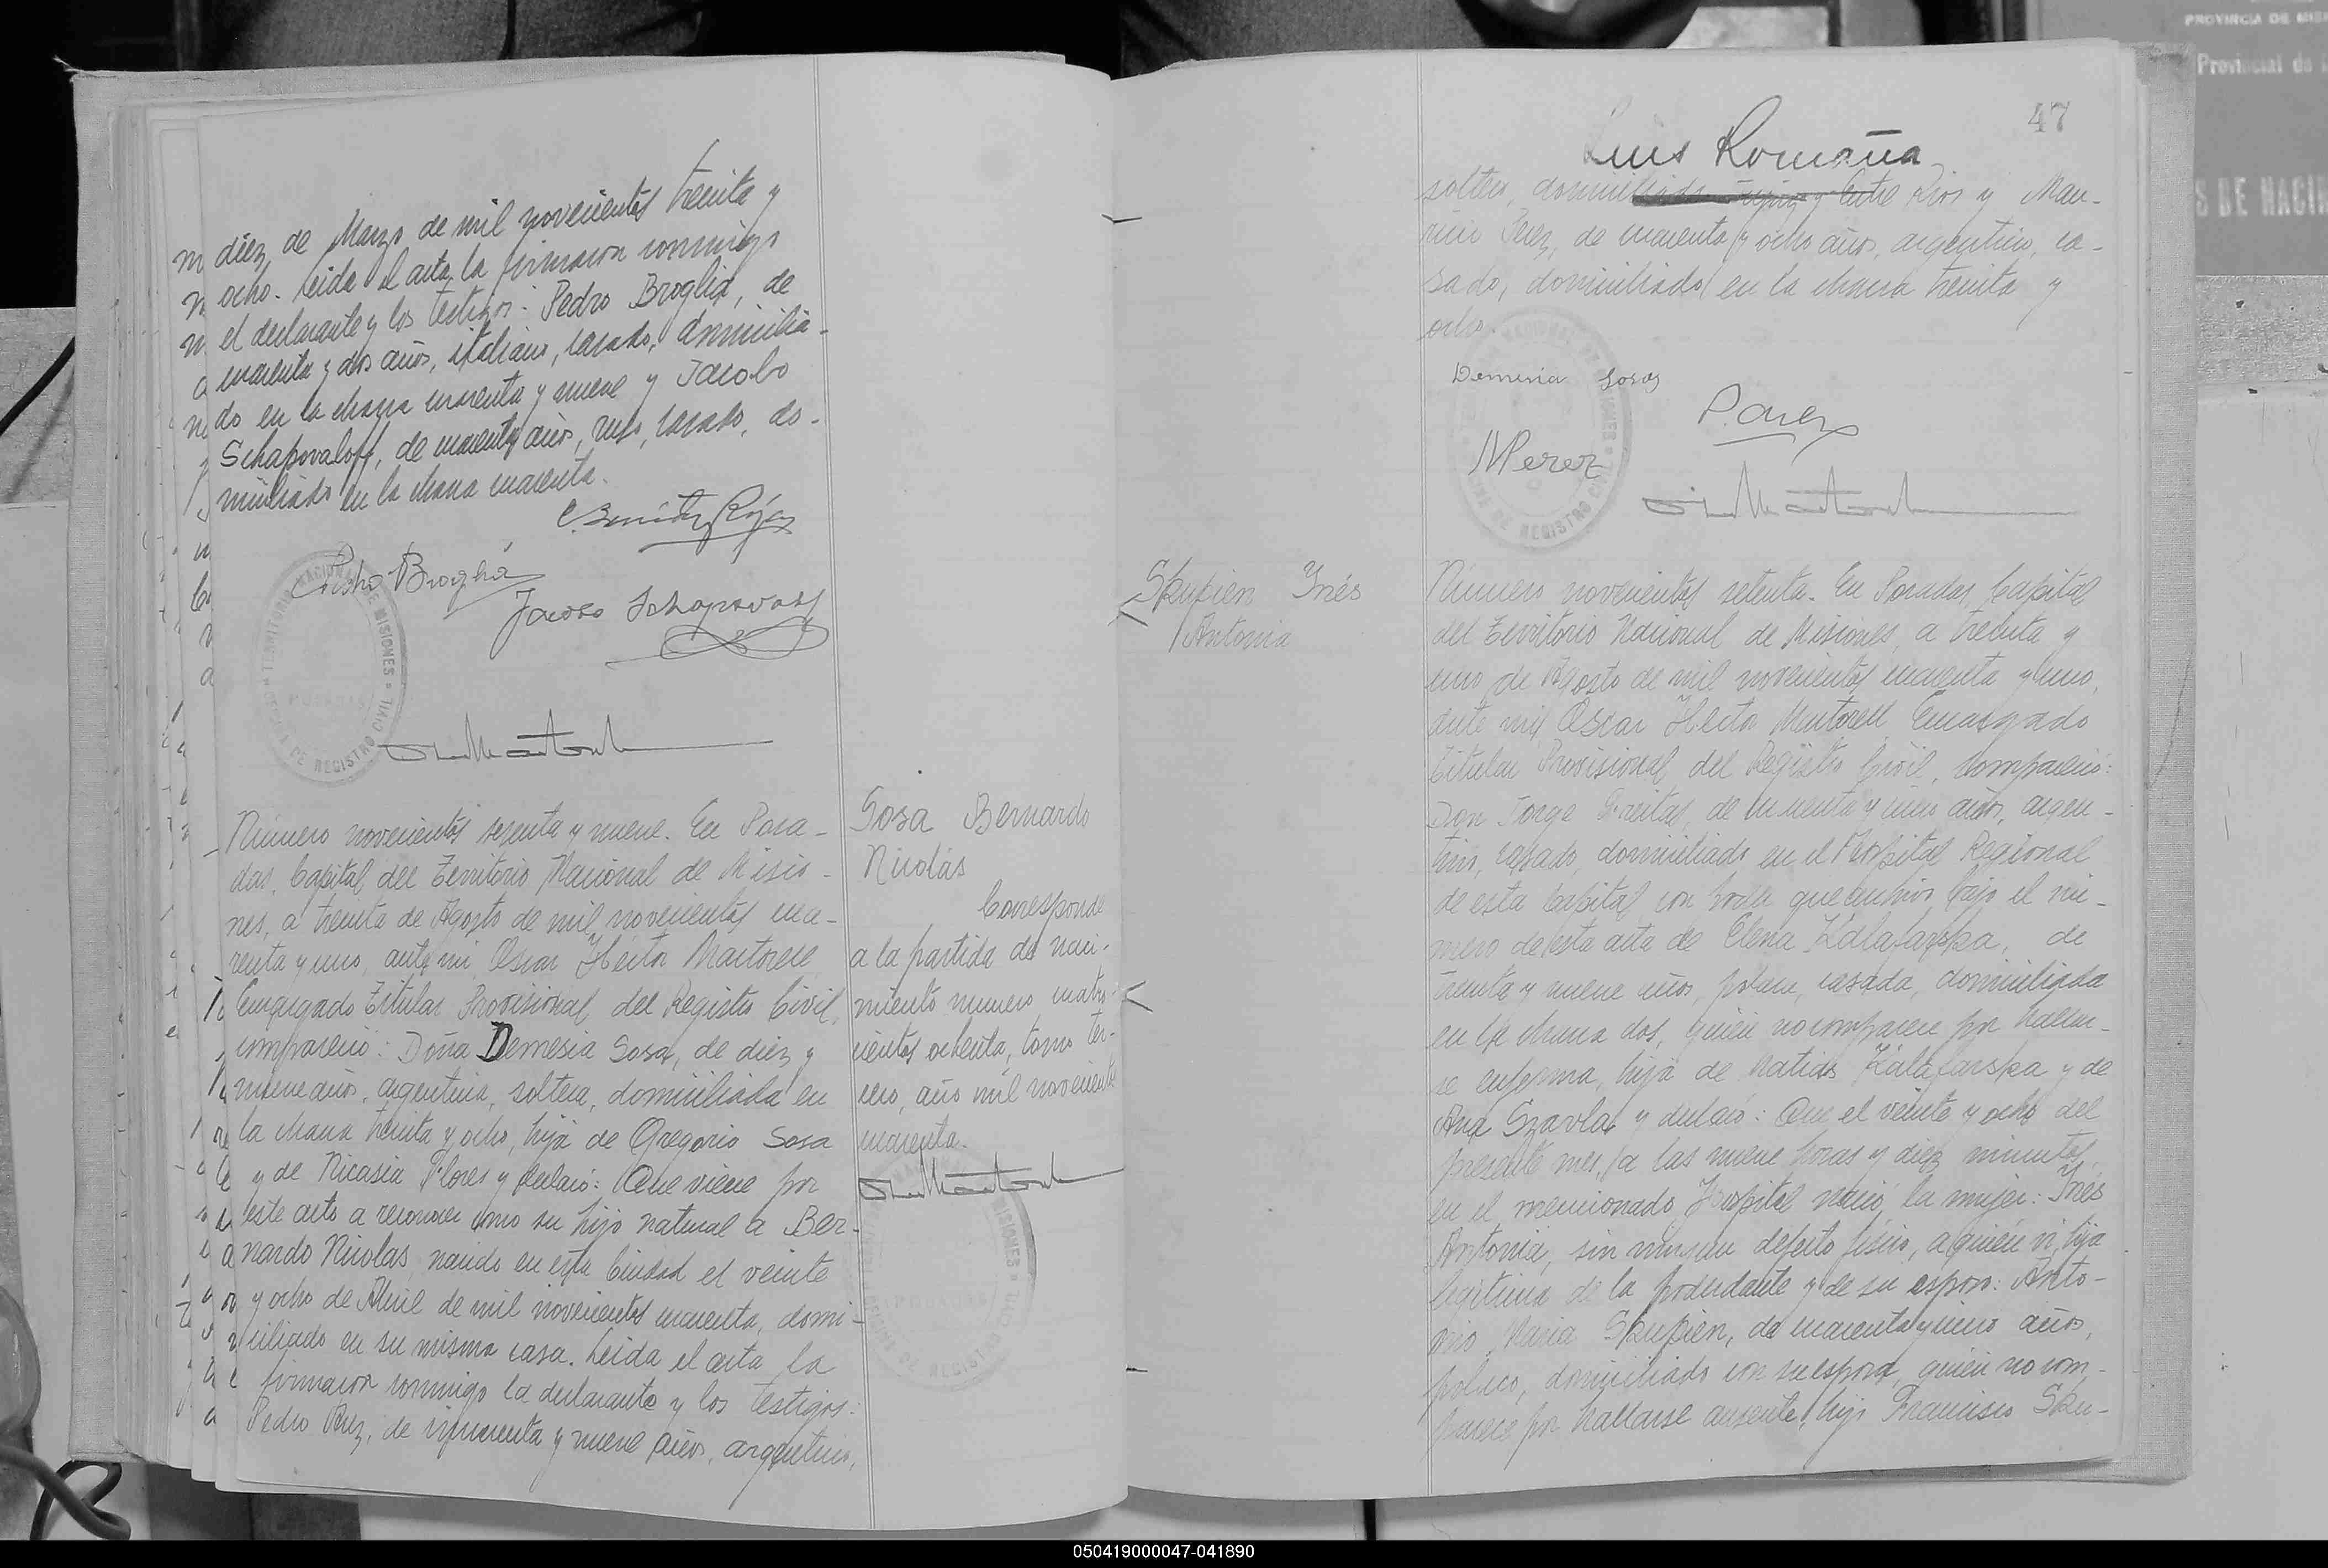 diez, de Marzo de mil novecientos treinta y
ocho. Leida el acta la firmaron conmigo
el declarante y los testigos: Pedro Broglia, de
cuarenta y dos años, italiano, casado, domicilia-
do en la chacra cuarenta y nueve y Jacobo
Schapovaloff, de cuarenta años, ruso, casado, do-
miciliado en la chacra cuarenta.
Pedro Broglia
Número novecientos sesenta y nueve. En Posa-
das, Capital del Territorio Nacional de Misio-
nes, a treinta de Agosto de mil novecientos cua-
renta y uno, ante mi, Oscar Héctor Martorell
Encargado Titular Provisional del Registro Civil,
compareció: Doña Demesia Sosa, de diez y
nueve años, argentina, soltera, domiciliada en
la chacra treinta y ocho, hija de Gregorio Sosa
y de Nicasia Flores y declaró: Que viene por
este acto a reconocer como su hijo natural a Ber-
nardo Nicolas, nacido en esta Ciudad el veinte
y ocho de Abril de mil novecientos cuarenta, domi-
ciliado en su misma casa. Leida el acta la
firmaron conmigo la declarante y los testigos:
Pedro Paez, de cincuenta y nueve años, argentino,
Sosa Bernardo
Nicolás
Corresponde
a la partida de naci-
miento numero cuatro-
cientos ochenta, tomo ter-
cero, año mil novecientos
cuarenta.
47
Luis Romaña
soltero, domiciliado y Entre Rios y Mau-
ricio Perez, de cuarenta y ocho años, argentino, ca-
sado, domiciliado en la chacra treinta y
ocho.
Demesia Sosa
P. Paez
M Perez
Skupien Inés
Antonia
Número novecientos setenta. En Posadas, Capital
del Territorio Nacional de Misiones, a treinta y
uno de Agosto de mil novecientos cuarenta y uno,
ante mi, Oscar Héctor Martorell Encargado
Titular Provisional del Registro Civil, compareció:
Don Jorge Freitas, de cuarenta y cinco años, argen-
tino, casado, domiciliado en el Hospital Regional
de esta Capital con poder que archivo bajo el nú-
mero de esta acta de Elena Kalafarska, de
treinta y nueve años, polaca, casada, domiciliada
en la chacra dos, quien no comparece por hallar-
se enferma, hija de Matias Kalafarska y de
Ana Szavla y declaró: Que el veinte y ocho del
presente mes, a las nueve horas y diez minutos,
en el mencionado Hospital nació la mujer: Inés
Antonia, sin ningun defecto fisico, a quien vi, hija
legitima de la poderdante y de su esposo: Anto-
nio Maria Skupien, de cuarenta y cinco años,
polaco, domiciliado con su esposa, quien no com-
parece por hallarse ausente, hijo Francisco Sku-
050419000047-041890